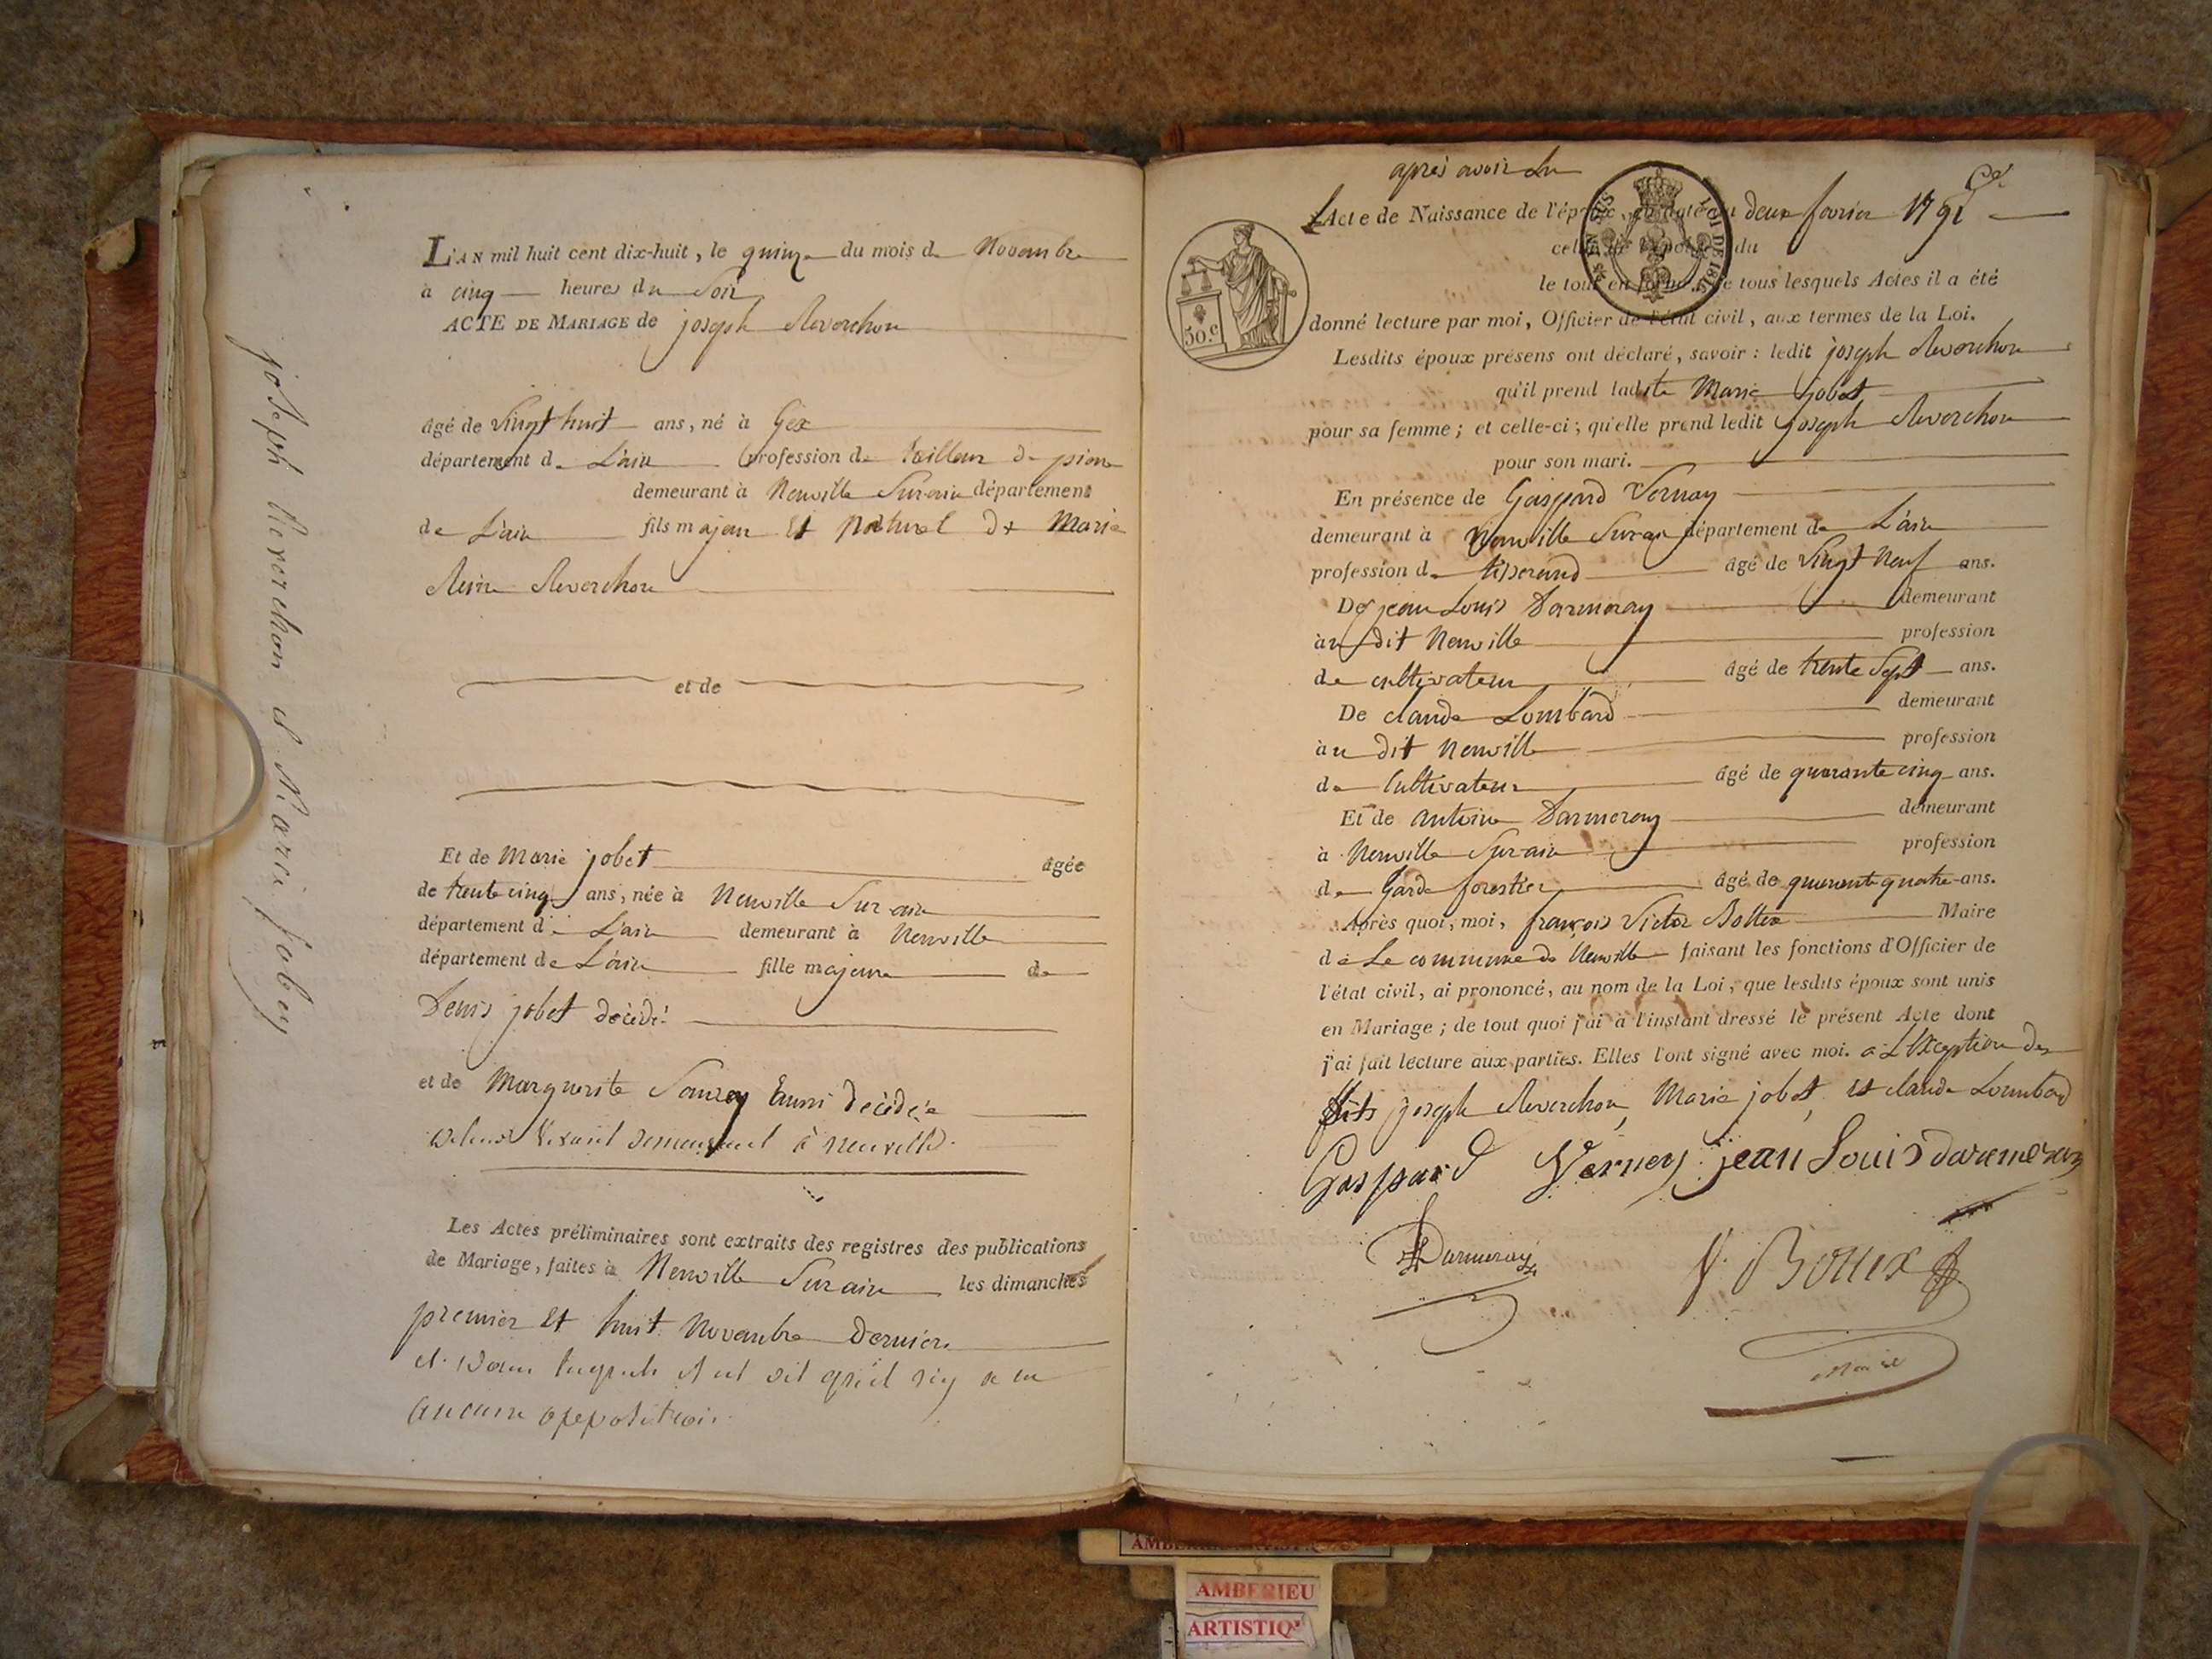 joseph Reverchon et Marie jobey
L'AN mil huit cent dix-huit, le quinze du mois de Novembre
à cinq heures du Soir
ACTE DE MARIAGE de joseph Reverchon
âgé de vingt huit ans, né à Gex
département de L'ain profession de tailleur de pierre
demeurant à Neuville Sur ain département
de L'ain fils majeur Et Naturel de Marie
Reine Reverchon
et de
Et de Marie jobet âgée
de trente cinq ans, née à Neuville Sur ain
département de L'ain demeurant à Neuville
département de L'ain fille majeure de
Denis jobet décédé
et de Marguerite aussi décédée
vivant demeurant à neuville
Les Actes préliminaires sont extraits des registres des publications
de Mariage, faites à Neuville Sur ain les dimanches
premier Et huit Novembre Dernier
et qu'il n'y a eu
aucune opposition
après avoir Lu
L'Acte de Naissance de l'époux, en date du deux fevrier 1791
celui de l'épouse du
le tout en forme; de tous lesquels Actes il a été
donné lecture par moi, Officier de l'état civil, aux termes de la Loi.
50.c
LOI DE 1816
Lesdits époux présens ont déclaré, savoir: ledit joseph Reverchon
qu'il prend ladite Marie jobet
pour sa femme; et celle-ci; qu'elle prend ledit joseph Reverchon
pour son mari.
En présence de Gaspard Vernay
demeurant à Neuville Sur ain département de L'ain
profession de tisserand âgé de vingt Neuf ans.
De jean Louis Darmeray demeurant
au dit Neuville profession
de cultivateur âgé de trente Sept ans.
De claude Lombard demeurant
au dit Neuville profession
de Cultivateur âgé de quarante cinq ans.
Et de antoine Darmeray demeurant
à Neuville Sur ain profession
de Garde forestier âgé de quarante quatre ans.
Après quoi, moi, françois Victor Bottex Maire
de La commune de Neuville faisant les fonctions d'Officier de
l'état civil, ai prononcé, au nom de la Loi, que lesdits époux sont unis
en Mariage; de tout quoi j'ai à l'instant dressé le présent Acte dont
j'ai fait lecture aux parties. Elles l'ont signé avec moi. à L'Exception des
dits joseph Reverchon, Marie jobet, et claude Lombard
Gaspard Verney jean Louis darmeray
Darmeray
V. Bottex
Maire
AMBERIEU
ARTISTIQ